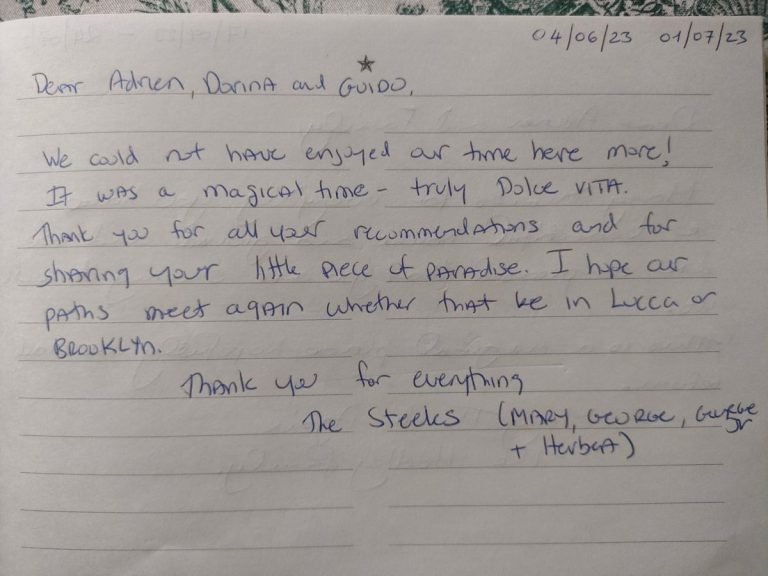 04/06/23 01/07/23
Dear Adrien, Dorina and GUIDO,
We could not have enjoyed our time here more!
It was a magical time - truly Dolce VITA.
Thank you for all your recommendations and for
sharing your little piece of paradise. I hope our
paths meet again whether that be in Lucca or
BROOKLYN.
Thank you for everything
The Steeks (MARY, GEORGE, George
Jr
+ Herbert)